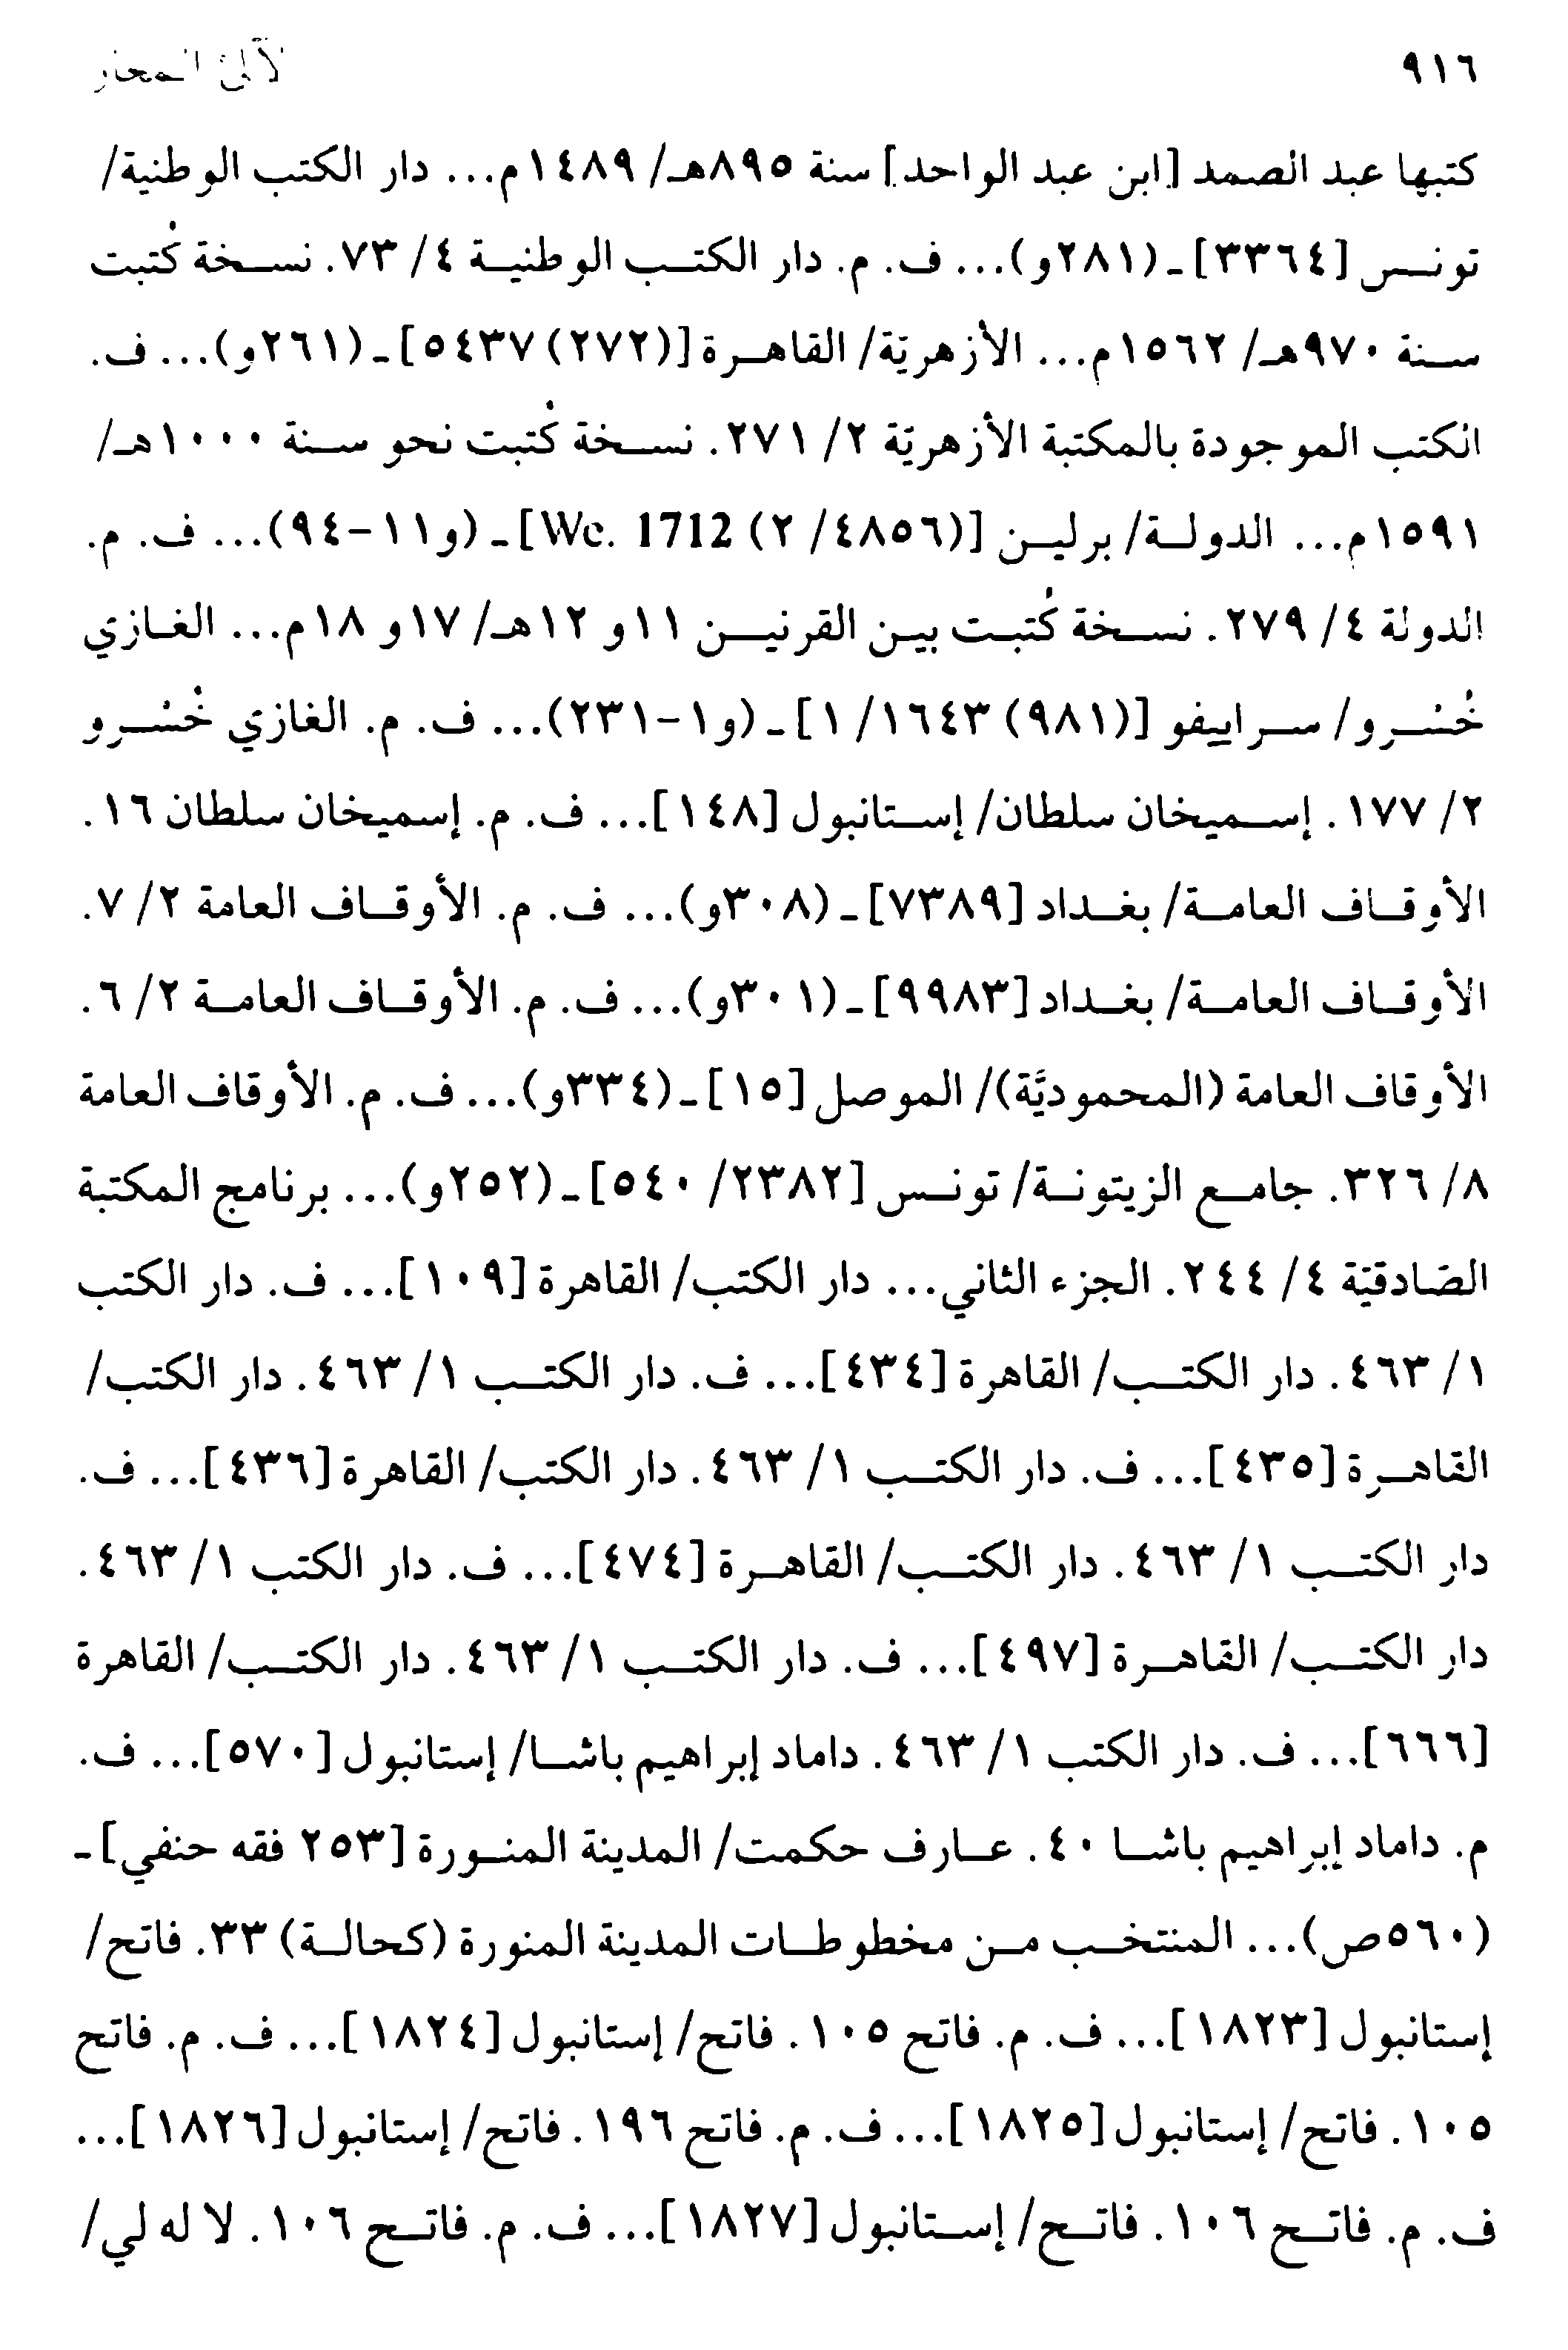 ٩١٦ لآلئ المحار
كتبها عبد الصمد [ابن عبد الواحد] سنة ٨٩٥هـ/ ١٤٨٩م... دار الكتب الوطنية/
تونس [٣٣٦٤] ـ (٢٨١و)... ف. م. دار الكتب الوطنية ٤/ ٧٣. نسخة كُتبت
سنة ٩٧٠هـ/ ١٥٦٢م... الأزهريّة/ القاهرة [(٢٧٢) ٥٤٣٧] ـ (٢٦١و)... ف.
الكتب الموجودة بالمكتبة الأزهريّة ٢/ ٢٧١. نسخة كُتبت نحو سنة ١٠٠٠هـ/
١٥٩١م... الدولة/ برلين [(٤٨٥٦/ ٢) We. 1712] ـ (و١١-٩٤)... ف. م.
الدولة ٤/ ٢٧٩. نسخة كُتبت بين القرنين ١١و ١٢هـ/ ١٧و ١٨م... الغازي
خُسْرو/ سراييفو [(٩٨١) ١٦٤٣/ ١] ـ (و١-٢٣١)... ف. م. الغازي خُسْرو
٢/ ١٧٧. إسميخان سلطان/ إستانبول [١٤٨]... ف. م. إسميخان سلطان ١٦.
الأوقاف العامة/ بغداد [٧٣٨٩] ـ (٣٠٨و)... ف. م. الأوقاف العامة ٢/ ٧.
الأوقاف العامة/ بغداد [٩٩٨٣] ـ (٣٠١و)... ف. م. الأوقاف العامة ٢/ ٦.
الأوقاف العامة (المحموديَّة)/ الموصل [١٥] ـ (٣٣٤و)... ف. م. الأوقاف العامة
٨/ ٣٢٦. جامع الزيتونة/ تونس [٢٣٨٢/ ٥٤٠] ـ (٢٥٢و)... برنامج المكتبة
الصّادقيّة ٤/ ٢٤٤. الجزء الثاني... دار الكتب/ القاهرة [١٠٩]... ف. دار الكتب
١/ ٤٦٣. دار الكتب/ القاهرة [٤٣٤]... ف. دار الكتب ١/ ٤٦٣. دار الكتب/
القاهرة [٤٣٥]... ف. دار الكتب ١/ ٤٦٣. دار الكتب/ القاهرة [٤٣٦]... ف.
دار الكتب ١/ ٤٦٣. دار الكتب/ القاهرة [٤٧٤]... ف. دار الكتب ١/ ٤٦٣.
دار الكتب/ القاهرة [٤٩٧]... ف. دار الكتب ١/ ٤٦٣. دار الكتب/ القاهرة
[٦٦٦]... ف. دار الكتب ١/ ٤٦٣. داماد إبراهيم باشا/ إستانبول [٥٧٠]... ف.
م. داماد إبراهيم باشا ٤٠. عارف حكمت/ المدينة المنورة [٢٥٣ فقه حنفي] ـ
(٥٦٠ص)... المنتخب من مخطوطات المدينة المنورة (كحالة) ٣٣. فاتح/
إستانبول [١٨٢٣]... ف. م. فاتح ١٠٥. فاتح/ إستانبول [١٨٢٤]... ف. م. فاتح
١٠٥. فاتح/ إستانبول [١٨٢٥]... ف. م. فاتح ١٩٦. فاتح/ إستانبول [١٨٢٦]...
ف. م. فاتح ١٠٦. فاتح/ إستانبول [١٨٢٧]... ف. م. فاتح ١٠٦. لا له لي/